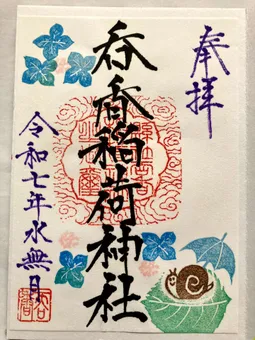 奉拝
呑香稲荷神社
令和七年水無月